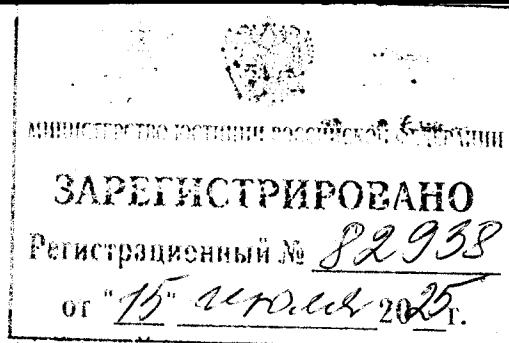 МИНИСТЕРСТВО ЮСТИЦИИ РОССИЙСКОЙ ФЕДЕРАЦИИ
ЗАРЕГИСТРИРОВАНО
Регистрационный № 82938
от "15" июля 2025г.